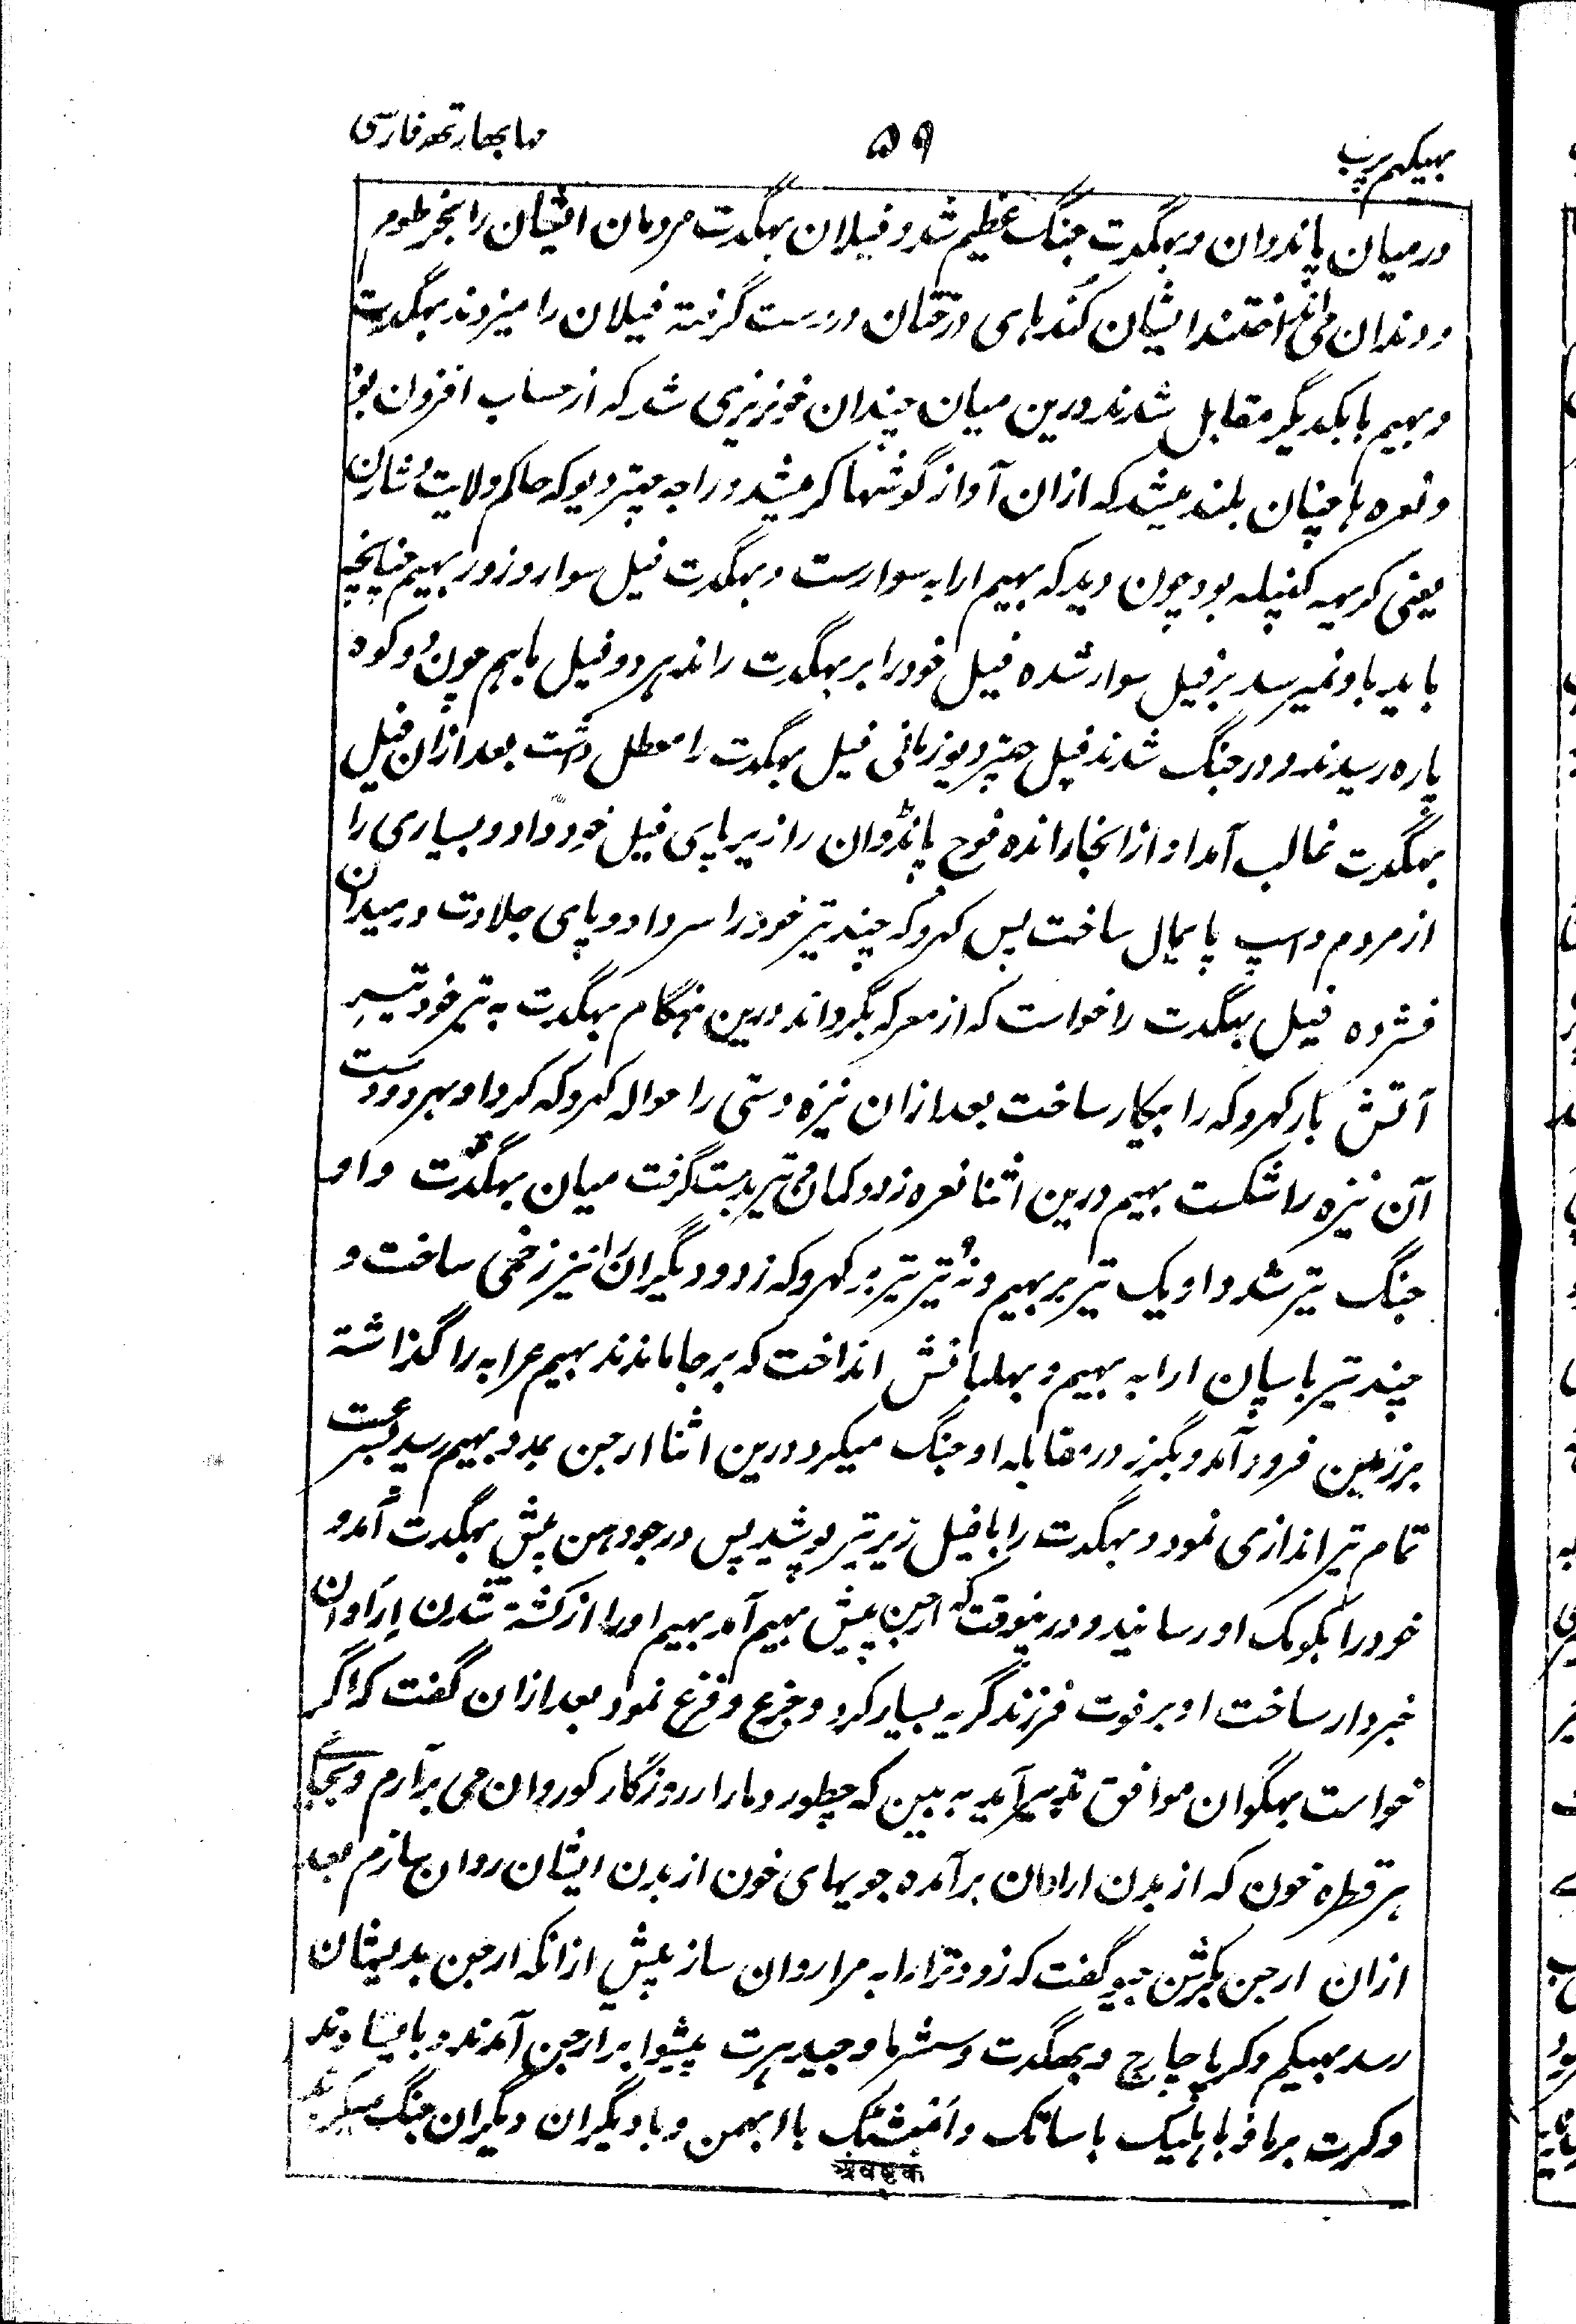 بهیکهم پرب ۵۹ مهابهارتهه فارسی
درمیان پاندوان و بهگدت جنگ عظیم شد و فیلان بهگدت مردمان ایشان را بخرطوم
و دندان می انداختند ایشان کنده‌های درختان در دست گرفته فیلان را میزدند بهگدت
و بهیم با یکدیگر مقابل شدند درین میان چندان خونریزی شد که از حساب افزون بود
و نعره ها چنان بلند میشد که ازان آواز گوشها کر میشد و راجه چتردیو که حاکم ولایت دشارن
یعنی کرمیه کنپله بود چون دید که بهیم ارابه سوارست و بهگدت فیل سوار و زور بهیم چنانچه
باید باو نمیرسد بر فیل سوار شده فیل خود را بر بهگدت راند هر دو فیل باهم چون دو کوه
پاره رسیدند و در جنگ شدند فیل چتردیو زمانی فیل بهگدت را معطل داشت بعد ازان فیل
بهگدت غالب آمد او از انجا رانده فوج پانڈوان را زیر پای فیل خود داد و بسیاری را
از مردم و اسپ پایمال ساخت پس کهروکه چند تیر خود را سر داد و پای جلادت در میدان
فشرده فیل بهگدت را خواست که از معرکه بگرداند درین هنگام بهگدت به تیر خود تیر
آتش بار کهروکه را بیکار ساخت بعد ازان نیزه دستی را حواله کهروکه کرد او بهر دو دست
آن نیزه را شکست بهیم درین اثنا نعره زد و کمان و تیر بدست گرفت میان بهگدت و او
جنگ تیر شد و او یک تیر بر بهیم و نه تیر تیز بر کهروکه زد و دیگران را نیز زخمی ساخت و
چند تیر باسپان ارابه بهیم و بهلبانش انداخت که بر جا ماندند بهیم عرابه را گذاشته
بر زمین فرود آمد و بگرز در مقابله او جنگ میکرد درین اثنا ارجن بمدد بهیم رسید بسرعت
تمام تیراندازی نمود و بهگدت را با فیل زیر تیر پوشید پس درجودهن پیش بهگدت آمد و
خود را بکومک او رسانید و درینوقت که ارجن پیش بهیم آمد بهیم او را از کشته شدن اراوان
خبردار ساخت او بر فوت فرزند گریه بسیار کرد و جزع و فزع نمود بعد ازان گفت که اگر
خواست بهگوان موافق تدبیر آمد به بین که چطور دمار از روزگار کوروان می برآرم و بجای
هر قطره خون که از بدن اراوان برآمده جویهای خون از بدن ایشان روان سازم بعد
ازان ارجن بکرشن جیو گفت که زودتر ارابه مرا روان ساز پیش ازانکه ارجن بدیشان
رسد بهیکم و کرپاچارج و بهگدت و سشرما و جیدرت پیشوا بر ارجن آمدند و بایستادند
و کرت برما و باهلیک با ساتک و انبشتک با ابهمن و با دیگران دیگران جنگ میکردند
अंवष्टक